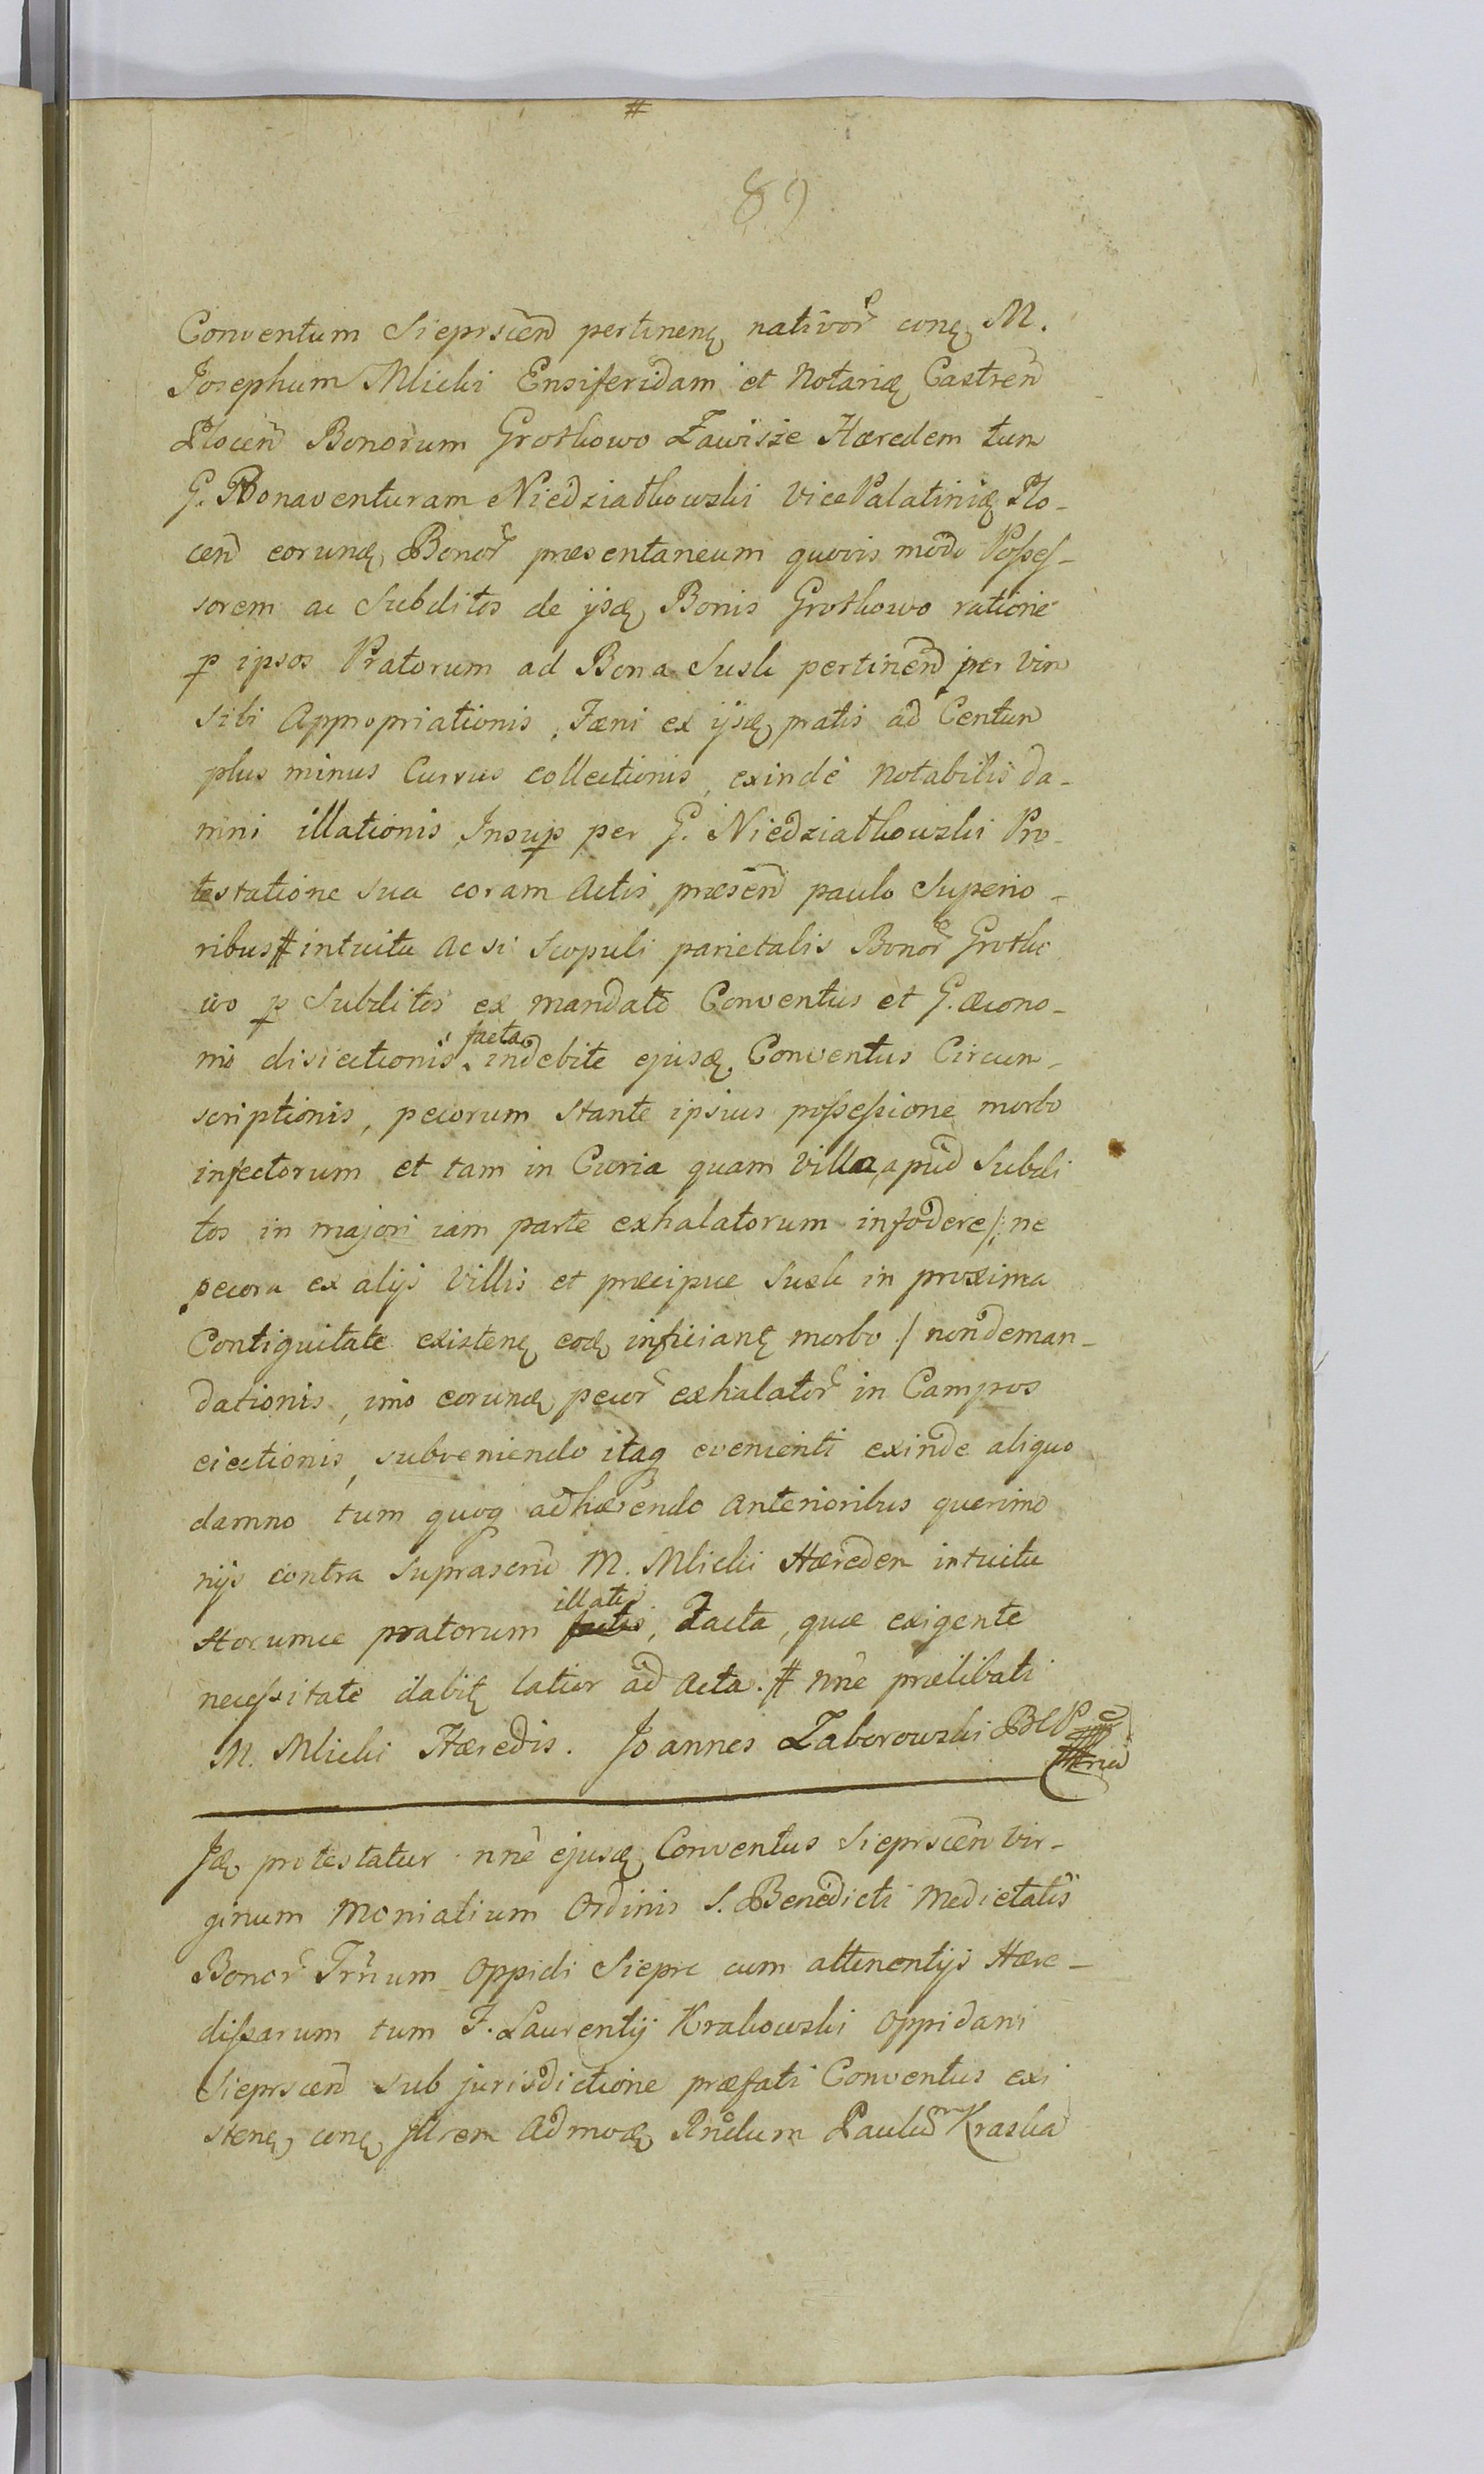 #
89
Conventum Sieprscen̄ pertinen̄ę nativor̄ con̄ę M.
Josephum Mlicki Ensiferidam et Notarię Castren̄
Plocen̄ Bonorum Grotkowo Zawisze Hæredem tum
G. Bonaventuram Niedziałkowski VicePalatinię Plo-
cen̄ eorunę Bonor̄ præsentaneum quovis modo Posses-
sorem ac Subditos de ijsę Bonis Grotkowo ratione
p ipsos Pratorum ad Bona Susk pertinen̄ per vim
sibi Appropriationis, Fæni ex ijsę pratis ad Centum
plus minus Currus collectionis, exinde notabilis da-
mni illationis Insup per G. Niedziałkowski Pro-
testatione sua coram Actis præsen̄ paulo Superio-
ribus # intuitu ac si Scopuli parietalis Bonor̄ Grotko
wo p Subditos ex mandato Conventus et G. œcono-
mo disiectionis facta indebite ejusę Conventus Circum-
scriptionis, pecorum stante ipsius possessione morbo
infectorum et tam in Curia quam Villa, apud Subdi
tos in majori iam parte exhalatorum infodere /: ne
pecora ex alijs Villis et præcipue Susk in proxima
Contiguitate existenę eoę inficianę morbo :/ non deman-
dationis, imo eorunę pecor̄ exhalator̄ in Campos
eiectionis, subveniendo itaq evenienti exinde aliquo
damno tum quoq adhærendo anterioribus querimo
nijs contra suprascrip̄ M. Mlicki Hæredem intuitu
Horumce pratorum factis illatis, Facta, quæ exigente
necessitate dabitę latior ad Acta. # nn̄e prælibati
M. Mlicki Hæredis. Joannes Zaborowski
Ję protestatur nn̄e ejusę Conventus Sieprscen̄ Vir-
ginum Monialium Ordinis S. Benedicti Medietatis
Bonor̄ Trr̄ium Oppidi Sieprc cum attinentijs Hære-
dissarum tum F. Laurentij Krakowski Oppidani
Sieprscen̄ sub jurisdictione præfati Conventus exi
stenę conę Illrem Admoę Rndum Paulum Kraska